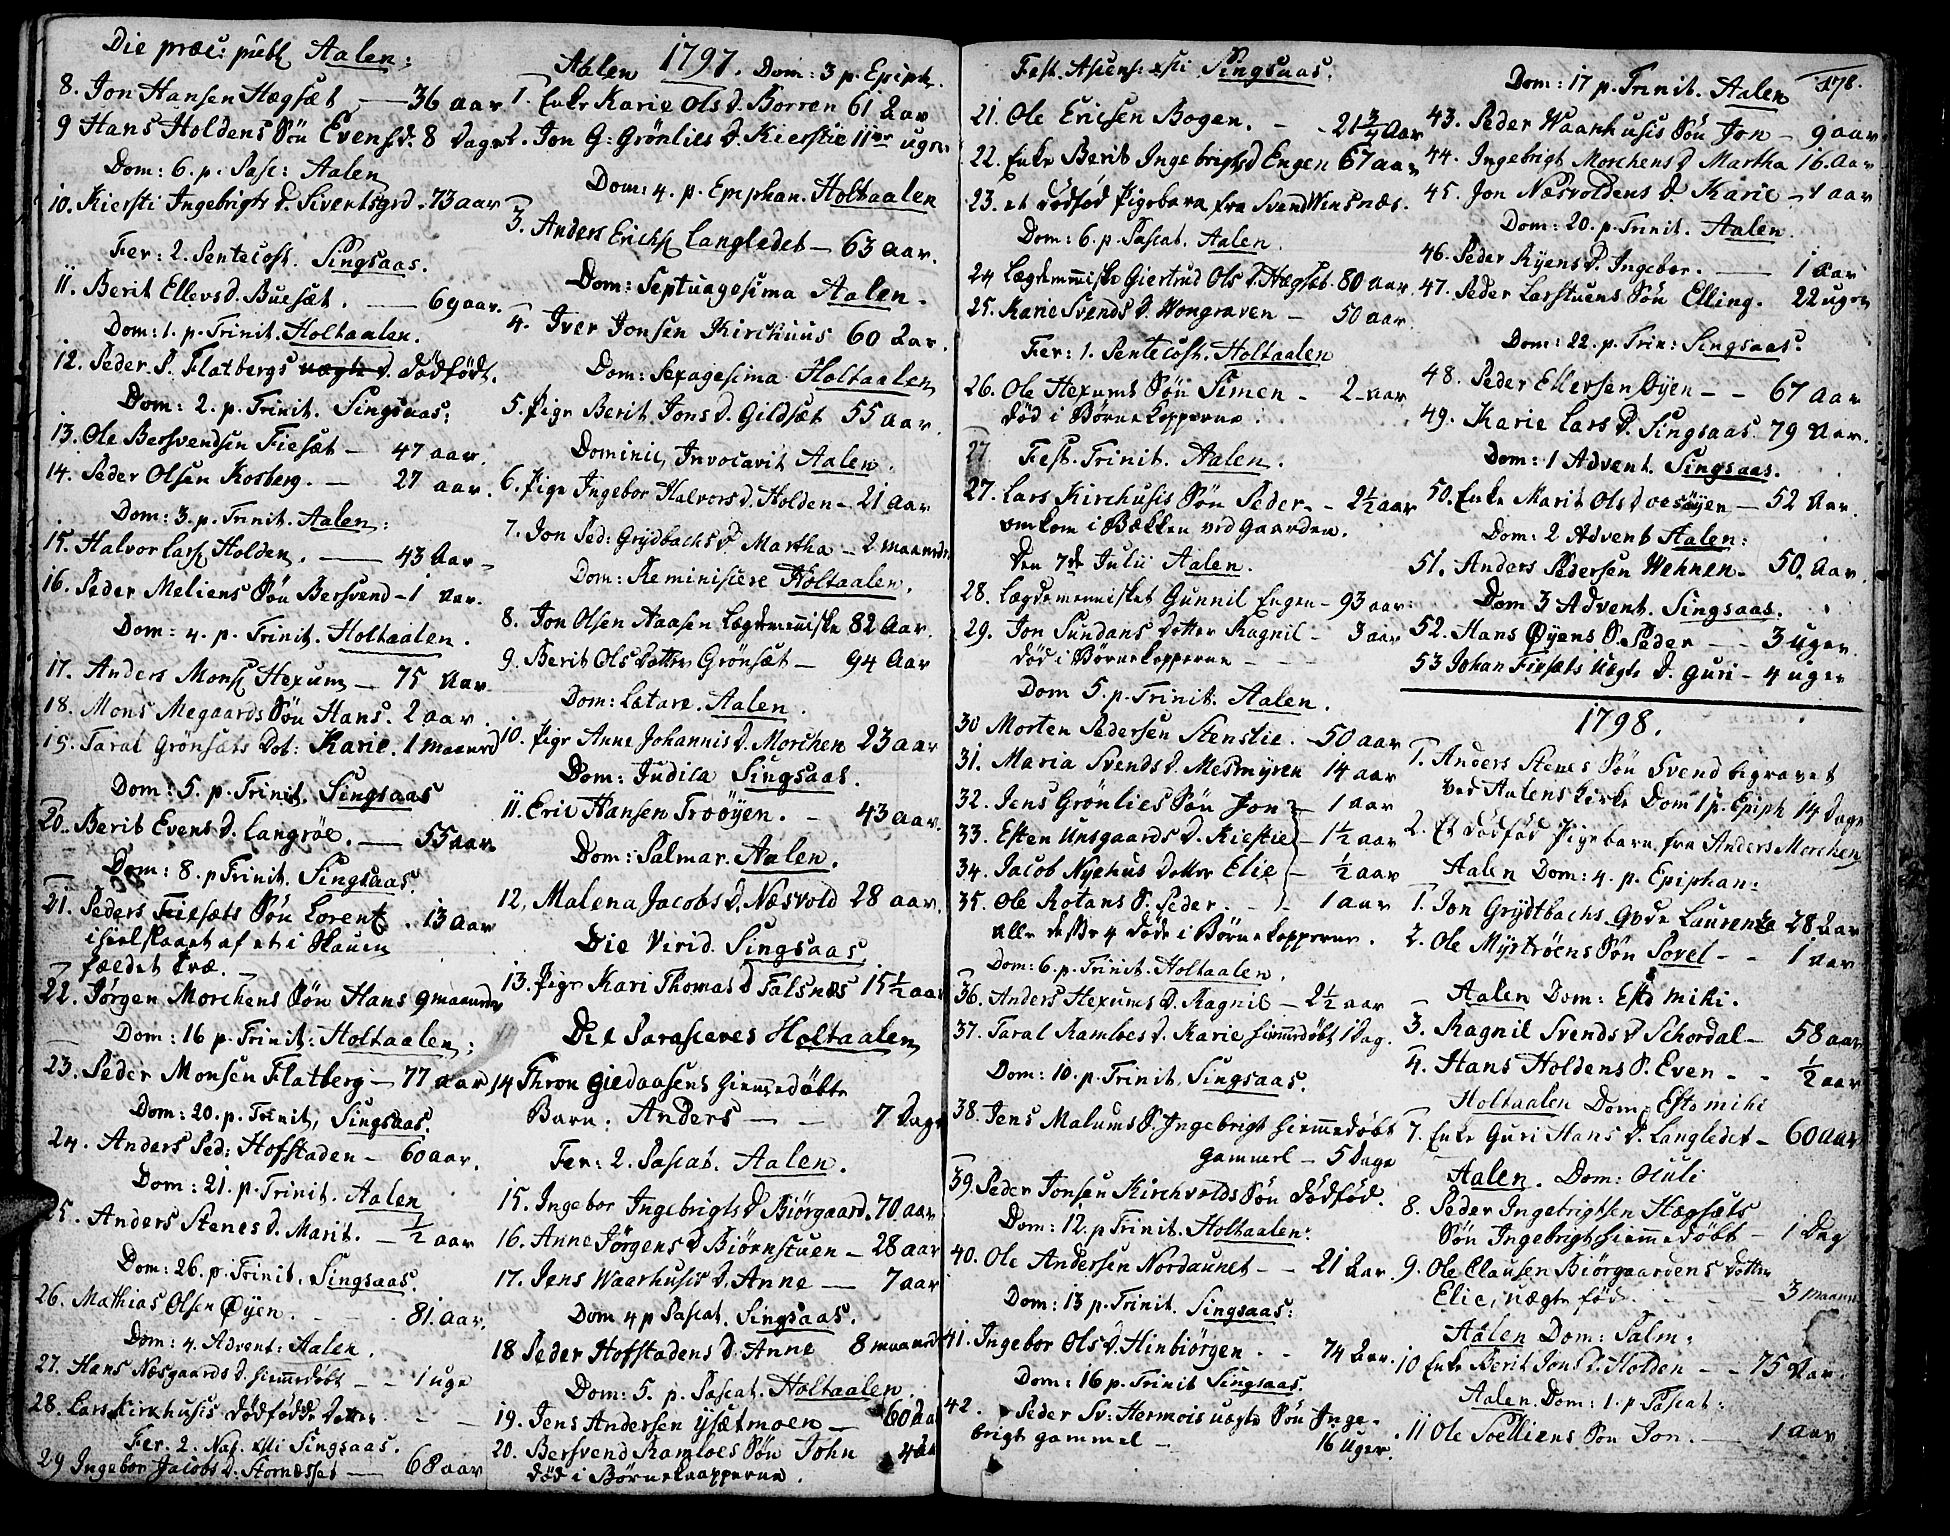 Die præc: publ Aalen:
8. Jon Hansen Hægsæt — 36 aar
9 Hans Holdens Søn Evensd. 8 Dage
Dom: 6. p. Pasc: Aalen
10. Kiersti Ingebrigts D. Sivertsgrd. 73 aar
Fer: 2. Pentecost. Singsaas.
11. Berit Ellevs D. Buesæt. — 69 aar.
Dom: 1. p. Trinit. Holtaalen.
12. Peder P. Flatbergs D. dödfödt.
Dom: 2. p. Trinit. Singsaas:
13. Ole Bersvendsen Fiesæt — 47 aar.
14. Peder Olsen Kosberg. — 27 aar.
Dom: 3. p. Trinit. Aalen:
15. Halvor Lars Holden. — 43 Aar
16. Peder Meliens Søn Bersvend — 1 Aar.
Dom: 4. p. Trinit. Holtaalen.
17. Anders Mons Hexum — 75 Aar
18. Mons Megaards Søn Hans. 2 aar.
19. Taral Grönsæts Dot: Karie. 1 maaned
Dom: 5. p. Trinit. Singsaas
20. Berit Evens D. Langröe. — 55 aar
Dom: 8. p Trinit. Singsaas.
21. Peders Fiesæts Søn Lorentz. 13 aar
ihielslaaet af et i Skauen
fældet træ.
22. Jørgen Morchens Søn Hans 9 maaneder
Dom: 16 p. Trinit: Holtaalen:
23. Peder Monsen Flatberg — 77 aar
Dom: 20. p. Trinit, Singsaas.
24. Anders Ped: Hofstaden — 60 aar.
Dom: 21. p. Trinit. Aalen
25. Anders Stenes D. Marit. — ½ aar
Dom: 26. p. Trinit. Singsaas.
26. Mathias Olsen Øyen. — 81. aar.
Dom: 4. Advent: Aalen.
27. Hans Næsgaards D. hiemmedöbt — 1 uge
28. Lars Kirkhusis dödfödde Datter
Fer. 2. Nat. xsti Singsaas.
29 Ingebor Jacobs D. Stornæsset — 68 aar
Aalen 1797. Dom: 3 p. Epiph.
1. Enke Karie Ols D. Borren 61 Aar
2. Jon G: Grönlies D. Kierstie 11 uger
Dom: 4. p. Epiphan. Holtaalen
3. Anders Erichs Langledet — 63 aar.
Dom: Septuagesima Aalen.
4. Iver Jonsen Kirchuus 60 Aar.
Dom: Sexagesima Holtaalen
5. Pige Berit Jons D. Gildsæt 55 aar.
Dominic, Invocavit Aalen.
6. Pige Ingebor Halvors D. Holden — 21 Aar
7. Jon Ped: Grydbachs D Martha — 2 maaneder
Dom: Reminiscere Holtaalen.
8. Jon Olsen Aasen Lægdemenniske 82 Aar.
9. Berit Ols Datter Grönsæt — 94 Aar
Dom: Lætare. Aalen.
10. Pige Anne Johannis D. Morchen 23 aar
Dom: Judica Singsaas.
11. Eric Hansen Troöyen. — 43 aar.
Dom: Palmar. Aalen.
12. Malena Jacobs D. Næsvold 28 aar.
Die Virid. Singsaas
13. Pige Kari Thomas D Falsnæs 15½ aar
Die Parasceves Holtaalen
14 Thron Giedaasens hiemmedöbte
Barn: Anders — 7 Dage
Fer: 2. Pascat. Aalen.
15. Ingebor Ingebrigts D Biörgaard. 70. aar
16. Anne Jörgens D Biörnstuen — 28 aar
17. Jens Waarhusis D. Anne — 7 aar
Dom 4 p Pascat. Singsaas.
18 Peder Hofstadens D. Anne 8 maaneder
Dom: 5. p. Pascat. Holtaalen.
19. Jens Andersen ysætmoen — 60 aar
20. Bersvend Ramloes Søn John
död i Börnekaapperne.
Fest. Ascens: xsti Singsaas.
21. Ole Ericsen Bogen. — 21¾ Aar
22. Enke Berit Ingebrigtsd Engen 67 aar
23. et dödfød Pigebarn fra Svend Winsnæs.
Dom: 6. p. Pascat. Aalen.
24 Lægdemenniske Giertrud Ols D. Hægsæt. 80 aar.
25. Karie Svends D. Wongraven — 50 aar.
Fer: 1. Pentecost. Holtaalen
26. Ole Hexums Søn Simen — 2 aar
död i Börnekopperne.
27 Fest. Trinit. Aalen.
27. Lars Kirchusis Søn Peder. — 2½ aar
omkom i Bækken ved Gaarden.
Den 7de Julii Aalen.
28. Lægdemennisket Gunnil Engen — 93 aar.
29. Jon Sundans Datter Ragnil — 3 aar
död i Börnekopperne —
Dom 5. p. Trinit. Aalen.
30 Morten Pedersen Stenslie. — 50 aar
31. Maria Svends D. Mesmyren 14 aar
32. Jens Grönlies Søn Jon — 1 aar
33. Esten Unsgaards D. Kiestie — 1½ aar
34. Jacob Nyehus Datter Elie — ½ aar
35. Ole Rotans S. Peder. — 1 aar
alle disse 4 döde i Börnekopperne.
Dom: 6. p. Trinit. Holtaalen.
36. Anders Hexums D. Ragnil — 2½ aar
37. Taral Ramloes D. Karie hiemmedöbt 1 Dag.
Dom: 10. p. Trinit. Singsaas.
38. Jens Malums S. Ingebrigt hiemmedöbt
Gammel — 5 Dage
39. Peder Jonsen Kirchvolds Søn dödfød.
Dom: 12. p Trinit. Holtaalen:
40. Ole Andersen Nordaunet — 21 Aar.
Dom: 13 p. Trinit. Singsaas:
41. Ingebor Ols D. Hinbiörgen. — 74 Aar.
Dom: 16 p. Trinit Singsaas.
42. Peder Sv: Hermois uægte Søn Inge-
brigt gammel — 16 Uger.
178.
Dom: 17 p. Trinit. Aalen
43. Peder Waarhusis Søn Jon — 9 aar
44. Ingebrigt Morchens D Martha 16. Aar
45. Jon Næsvoldens D. Karie — 1 aar
Dom: 20. p. Trinit. Aalen.
46. Peder Ryens D. Ingebor. — 1 Aar
47. Peder Larstuens Søn Elling. 22 uger
Dom: 22. p. Trin: Singsaas:
48. Peder Ellevsen Øyen — 67 Aar
49. Karie Lars D. Singsaas. 79 Aar.
Dom: 1 Advent. Singsaas.
50. Enke Marit Ols D oesöyen — 52 Aar.
Dom: 2 Advent Aalen:
51. Anders Pedersen Wehnen — 50. Aar.
Dom 3 Advent. Singsaas.
52. Hans Øyens S. Peder — 3 uger.
53 Johan Fiesæts uægte D. Guri — 4 uger
1798.
1. Anders Stenes Søn Svend begravet
ved Aalens Kirke Dom 1 p. Epiph 14 Dage
2. Et dödfød Pigebarn fra Anders Morchen
Aalen Dom: 4. p. Epiphan:
1. Jon Grydtbachs Gvde Laurentz 28 Aar
2. Ole Myströens Søn Povel — 1 aar
Aalen Dom: Esto mihi.
3. Ragnil Svends D Schordal — 58 aar
4. Hans Holdens S. Even — ½ aar
Holtaalen Dom: Esto mihi
7. Enke Guri Hans D. Langledet — 60 aar
Aalen. Dom: Oculi
8. Peder Ingebrigtsen Hægsæts
Søn Ingebrigt hiemmedöbt — 1 Dag
9. Ole Clausen Biörgaardens Datter
Elie, uægte fød. — 3 maaned
Aalen Dom: Palm:
10 Enke Berit Jons D. Holden — 75 Aar.
Aalen. Dom: 1. p Pascat:
11 Ole Soelliens Søn Jon. — 1 Aar